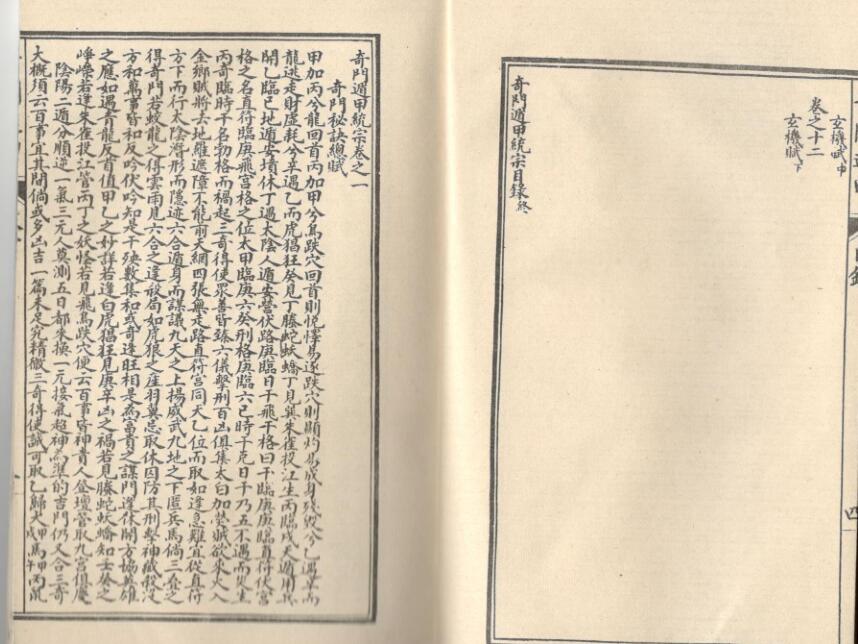 玄機賦中
卷之十二
玄機賦下
奇門遁甲統宗目錄終
奇門遁甲統宗卷之一
奇門秘訣總賦
甲加丙兮龍回首丙加甲兮鳥跌穴回首則悅懌易遂跌穴則顯灼易成身殘毀兮乙遇辛而
龍逃走財虛耗兮辛遇乙而虎猖狂癸見丁騰蛇妖蟜丁見癸朱雀投江生丙臨戌天遁用兵
開乙臨己地遁安墳休丁遇太陰人遁安營伏路庚臨日干飛干格曰干臨庚庚臨直符伏宮
格之名直符臨庚飛宮格之位太甲臨庚六癸刑格庚臨六己時干克日干乃五不遇而災生
丙奇臨時干名勃格而禍起三奇得使眾善皆臻六儀擊刑百凶俱集太白加熒賊欲來火入
金鄉賊將去地羅遮障不能前天網四張無走路直符宮同天乙位而取如逢急難宜從直符
方下而行太陰潛形而隱迹六合遁身而謀議九天之上揚威武九地之下匿兵馬倘三奎之
得奇門若蛟龍之得雲雨見六合之逢殺局如虎狼之產羽翼忌取休囚防其刑擊神藏殺沒
方和萬事皆和反吟伏吟知是干殃數集和或奇逢旺相是為富貴之謀門逢休開方協英雄
之應如遇青龍反首值甲乙之妙詳若逢白虎猖狂見庚辛凶之禍若見騰蛇妖蟜知壬癸之
崢嶸若逢朱雀投江管丙丁之妖怪若見飛鳥跌穴便云百事皆神貴人登壇當取九宮俱慶
陰陽二遁分順逆一氣三元人莫測五日都來換一元接氣超神為準的吉門仍又合三奇
大概須云百事宜其間倘或多凶吉一篇未足究精微三奇得使誠可取乙歸犬